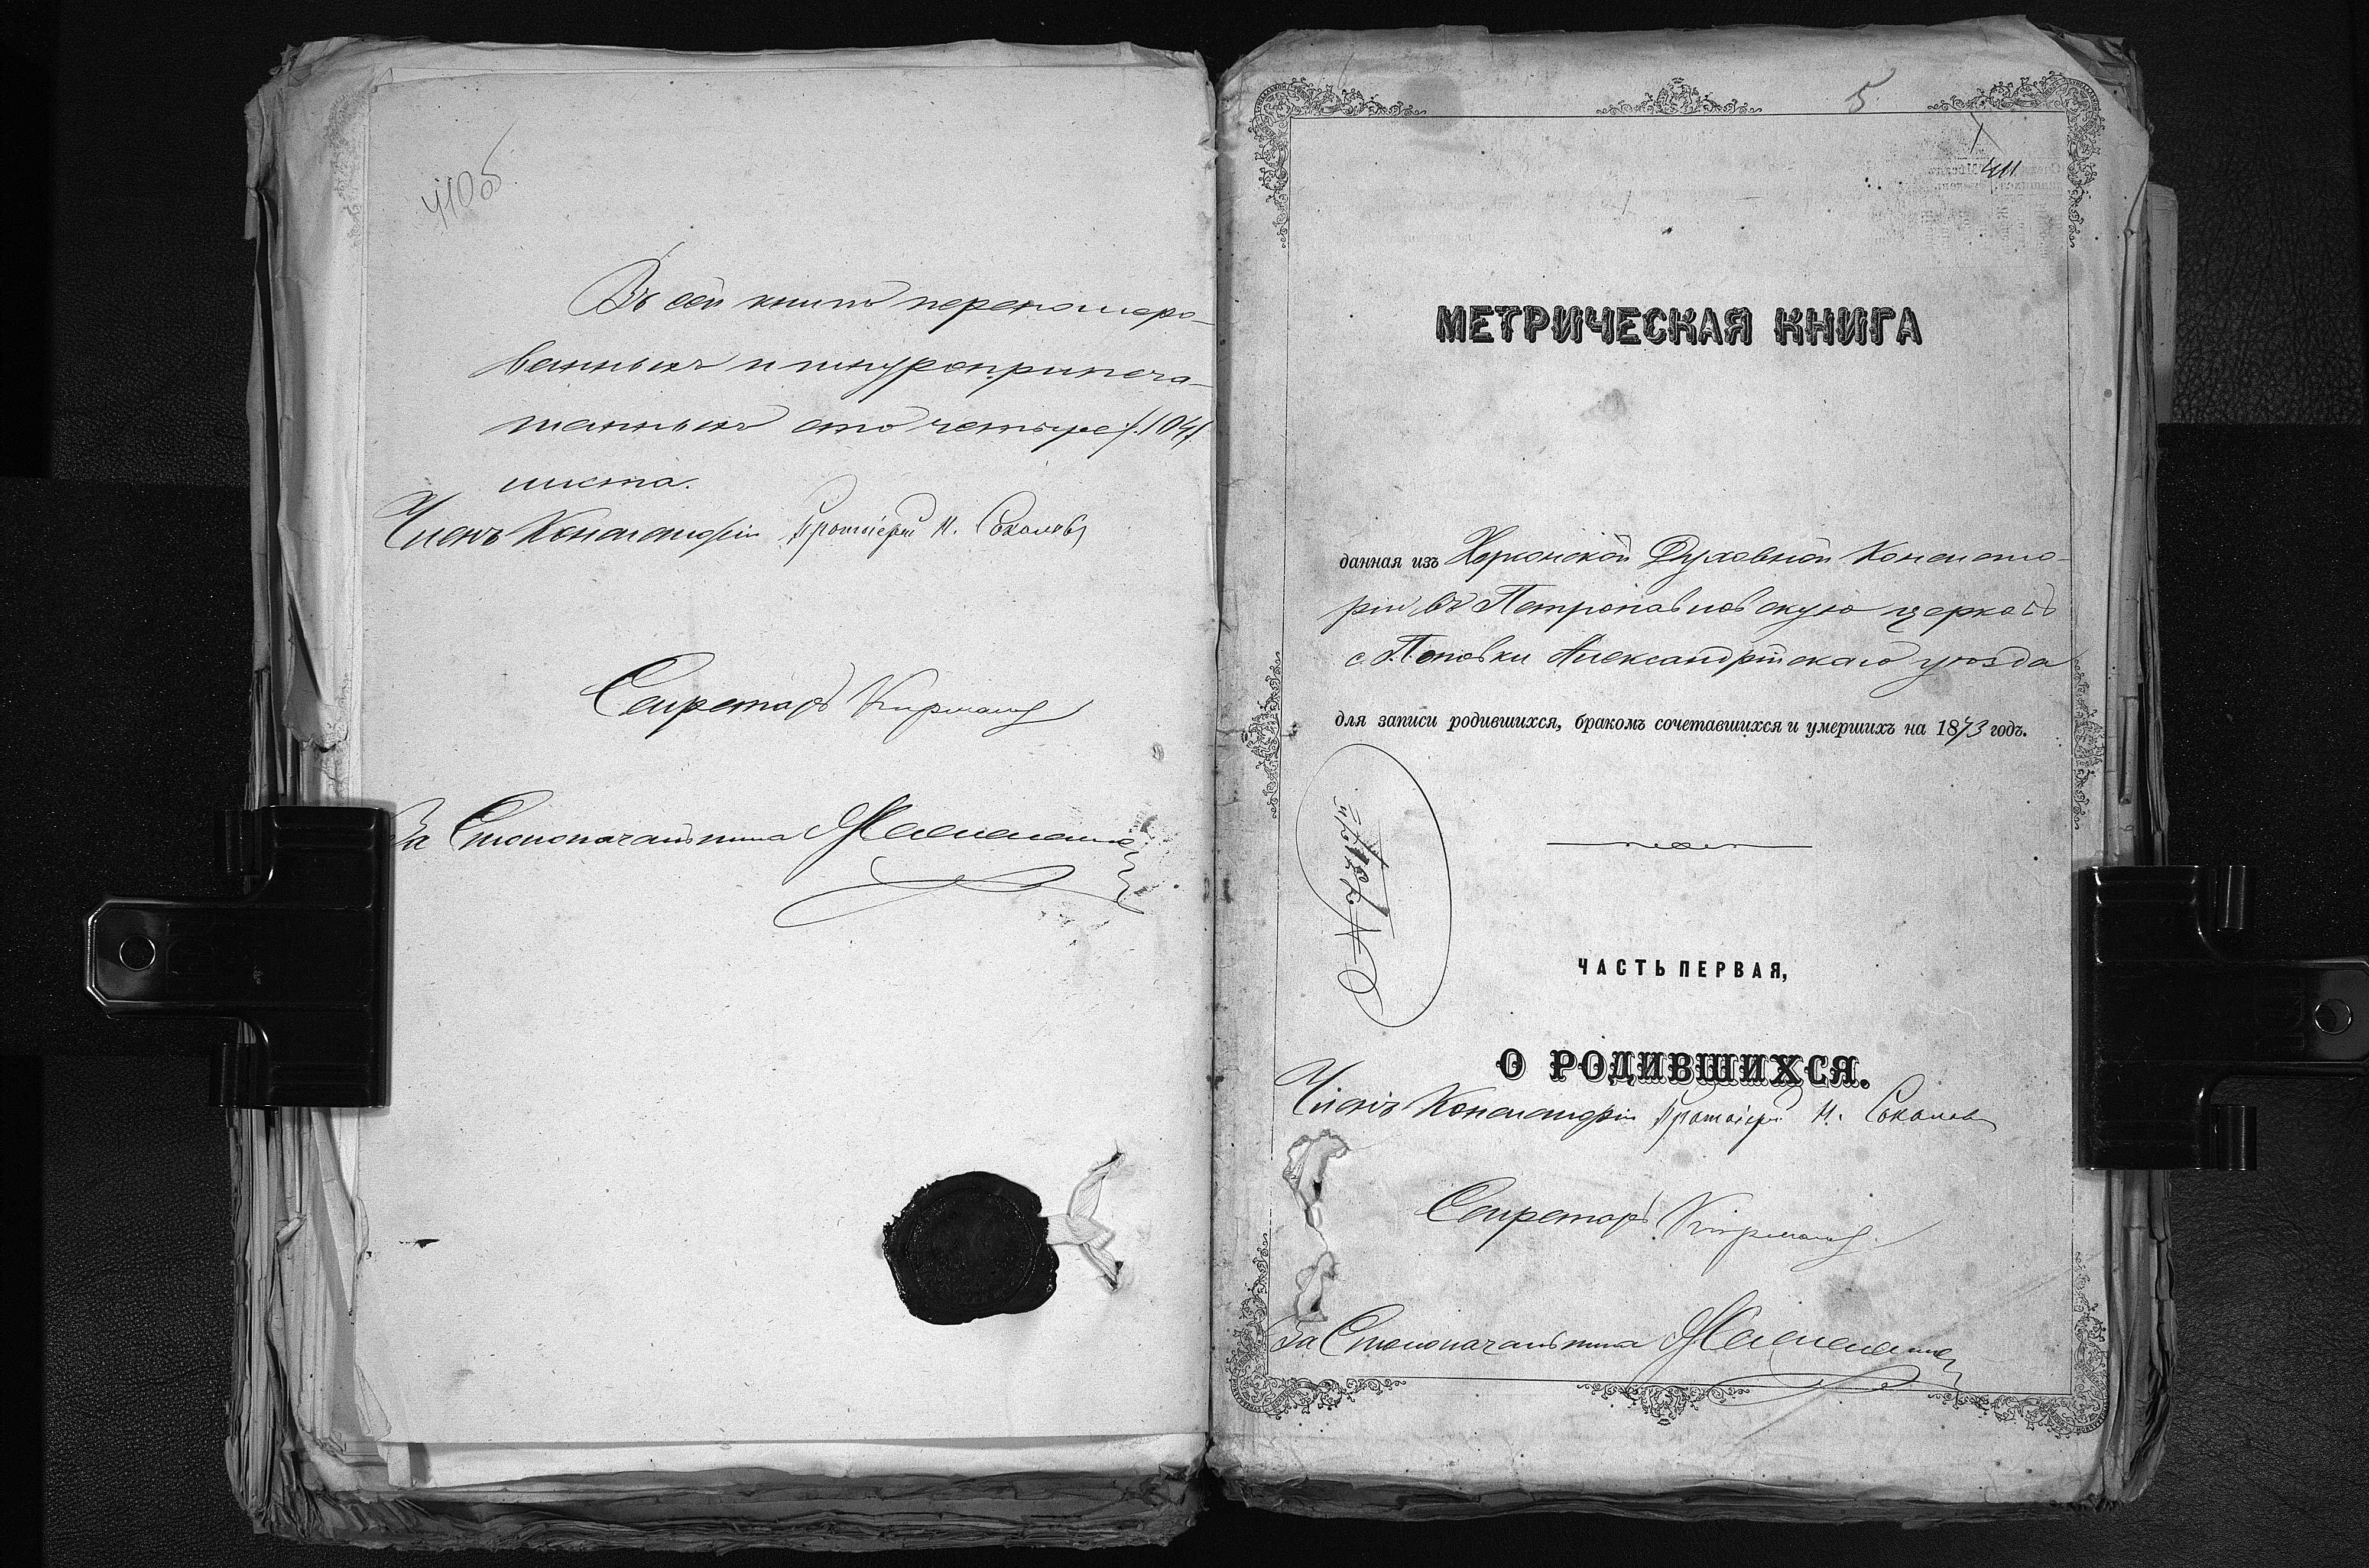 410об
Въ сей книгѣ перепомеро-
ванныхъ и шнуроприпеча-
танныхъ сто четыре /.104/.
листа.
Членъ Консисторіи Протоіерей Н. Соколовъ
Секретарь
За Столоначальника
5
1
411
МЕТРИЧЕСКАЯ КНИГА
данная изъ Херсонской Духовной Консисто-
ріи въ Петропавловскую церковь
с. Поповки Александрійскаго уѣзда
для записи родившихся, бракомъ сочетавшихся и умершихъ на 1873 годъ.
ЧАСТЬ ПЕРВАЯ,
О РОДИВШИХСЯ.
Членъ Консисторіи Протоіерей Н. Соколовъ
Секретарь
За Столоначальника